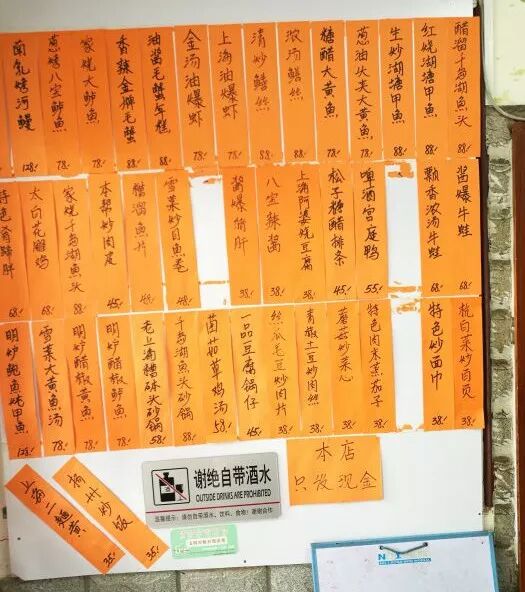 南乳烤河鳗 128/
葱烤八宝鲈鱼 78/
家烧大鲈鱼 78/
香辣金牌毛蟹 88/
油酱毛蟹年糕 88/
金汤油爆虾 78/
上海油爆虾 78/
清炒鳝丝 88/
浓汤鳝丝 88/
糖醋大黄鱼 78/
葱油火夹大黄鱼 78/
生炒湖塘甲鱼 88/
红烧湖塘甲鱼 88/
醋溜千岛湖鱼头 88/
特色肴蹄胖 68/
太白花雕鸡 68/
家烧千岛湖鱼头 88/
本帮炒肉皮 45/
糟溜鱼片 48/
雪菜炒目鱼卷 48/
酱爆猪肝 38/
八宝辣酱 38/
上海阿婆烧豆腐 38/
松子糖醋排条 45/
啤酒宫庭鸭 55/
飘香浓汤牛蛙 68/
酱爆牛蛙 68/
明炉鲍鱼烤甲鱼 128/
雪菜大黄鱼汤 78/
明炉醋椒黄鱼 78/
明炉醋椒鲈鱼 78/
老上海糟钵头砂锅 58/
千岛湖鱼头砂锅 88/
菌菇草鸡汤 58/
一品豆腐锅仔 45/
丝瓜毛豆炒肉片 38/
青椒土豆炒肉丝 38/
蘑菇炒菜心 38/
特色肉末蒸茄子 38/
特色炒面巾 38/
杭白菜炒百页 38/
上海二面黄 35/
扬州炒饭 35/
谢绝自带酒水
OUTSIDE DRINKS ARE PROHIBITED
温馨提示：请勿自带酒水、饮料、食物！谢谢合作
本店
只收现金